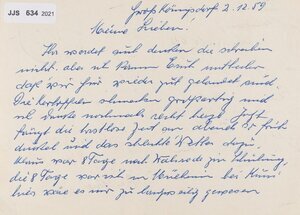 JJS 534 2021
Großkönigsdorf 2.12.89
Meine Lieben!
Ihr werdet auch denken die schreiben
nicht. Aber ich kann Euch mitteilen
daß wir hier wieder gut gelandet sind.
Die Kartoffeln schmecken großartig und
ich danke nochmals recht herz. Jetzt
fängt die trostlose Zeit an abends so früh
dunkel und das schlechte Wetter dazu.
war 8 Tage nach Schulung,
die 8 Tage war ich in München bei
hier wäre es mir zu langweilig gewesen